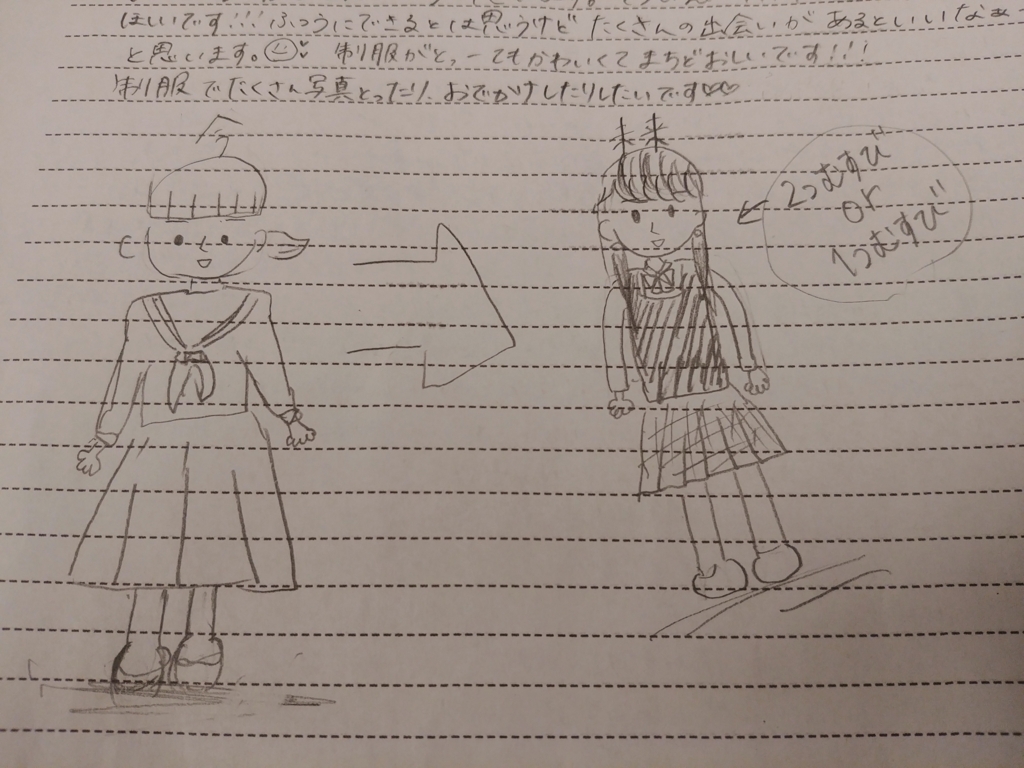 ほしいです!!!ふつうにできるとは思うけど たくさんの出会いが あるといいなぁ
と思います。☺♥ 制服がとーってもかわいくて まちどおしいです!!!
制服でたくさん写真とったり、おでかけしたりしたいです♡♡
2つむすび
or
1つむすび